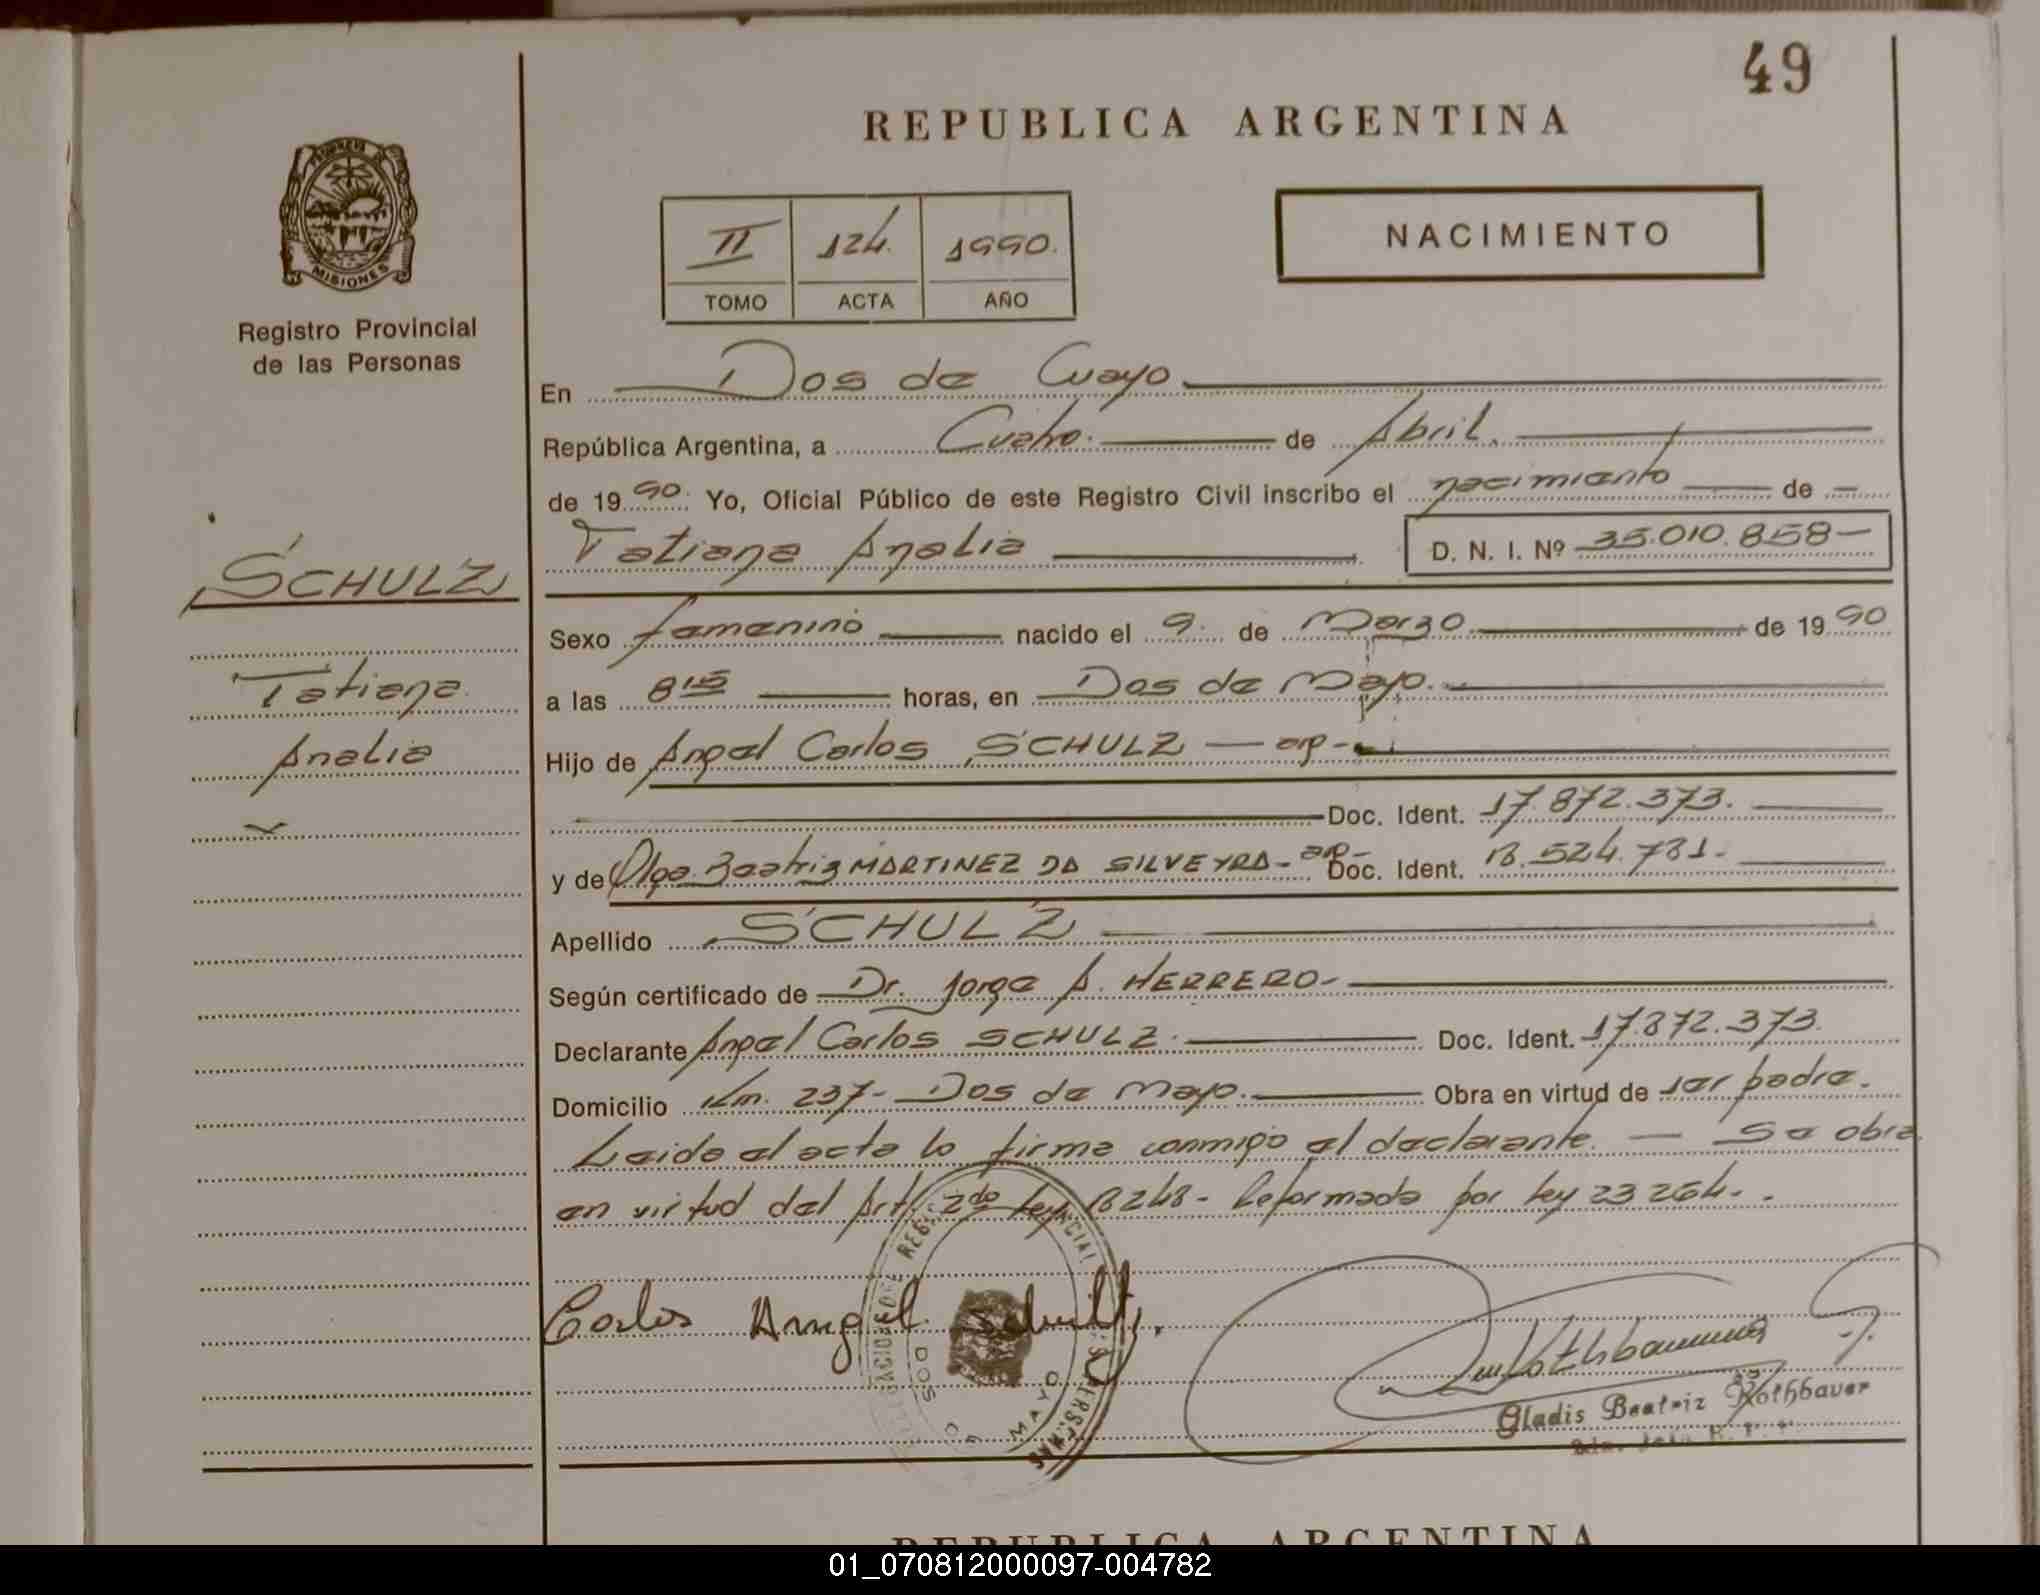 49
REPUBLICA ARGENTINA
PROVINCIA DE
MISIONES
Registro Provincial
de las Personas
II 124. 1990.
TOMO ACTA AÑO
NACIMIENTO
En Dos de Mayo
República Argentina, a Cuatro. de Abril.
de 1990. Yo, Oficial Público de este Registro Civil inscribo el nacimiento de
Tatiana Analia D. N. I. Nº 35.010.858-
SCHULZ
Tatiana
Analia
Sexo femenino nacido el 9. de Marzo de 1990
a las 8 15 horas, en Dos de Mayo.
Hijo de Angel Carlos SCHULZ — arg-
Doc. Ident. 17.872.373.
y de Olga Beatriz MARTINEZ DA SILVEYRA- arg- Doc. Ident. 18.524.781-
Apellido SCHULZ
Según certificado de Dr. Jorge A. HERRERO-
Declarante Angel Carlos SCHULZ. Doc. Ident. 17.872.373.
Domicilio Km. 237- Dos de Mayo. Obra en virtud de ser padre.
Leida el acta la firma conmigo el declarante. — Se obra
en virtud del Art. 2do Ley 18248- Reformada por Ley 23264-.
Carlos Angel
DOS DE MAYO
Gladis Beatriz Rothbauer
REPUBLICA ARGENTINA
01_070812000097-004782